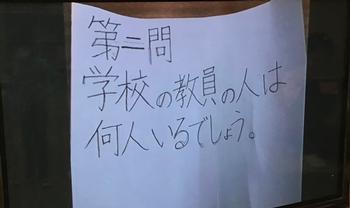 第二問
学校の教員の人は
何人いるでしょう。